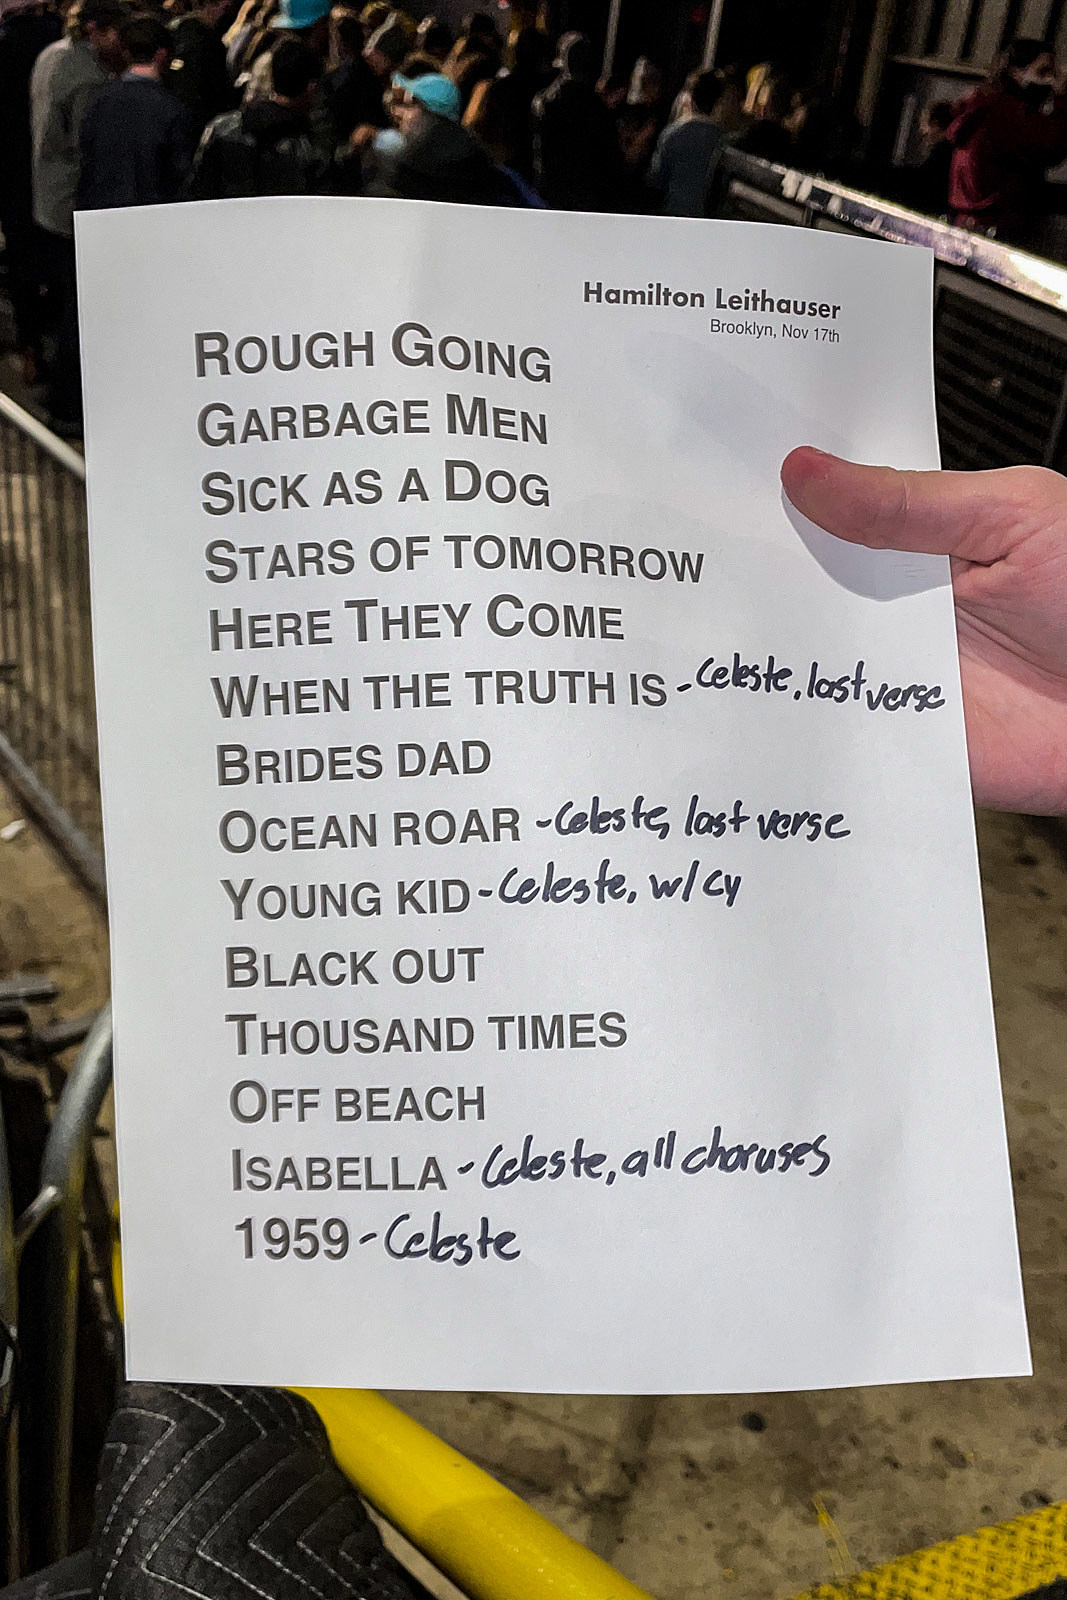 Hamilton Leithauser
Brooklyn, Nov 17th
ROUGH GOING
GARBAGE MEN
SICK AS A DOG
STARS OF TOMORROW
HERE THEY COME
WHEN THE TRUTH IS - Celeste, last verse
BRIDES DAD
OCEAN ROAR - Celeste, last verse
YOUNG KID - Celeste, w/ cy
BLACK OUT
THOUSAND TIMES
OFF BEACH
ISABELLA - Celeste, all choruses
1959 - Celeste